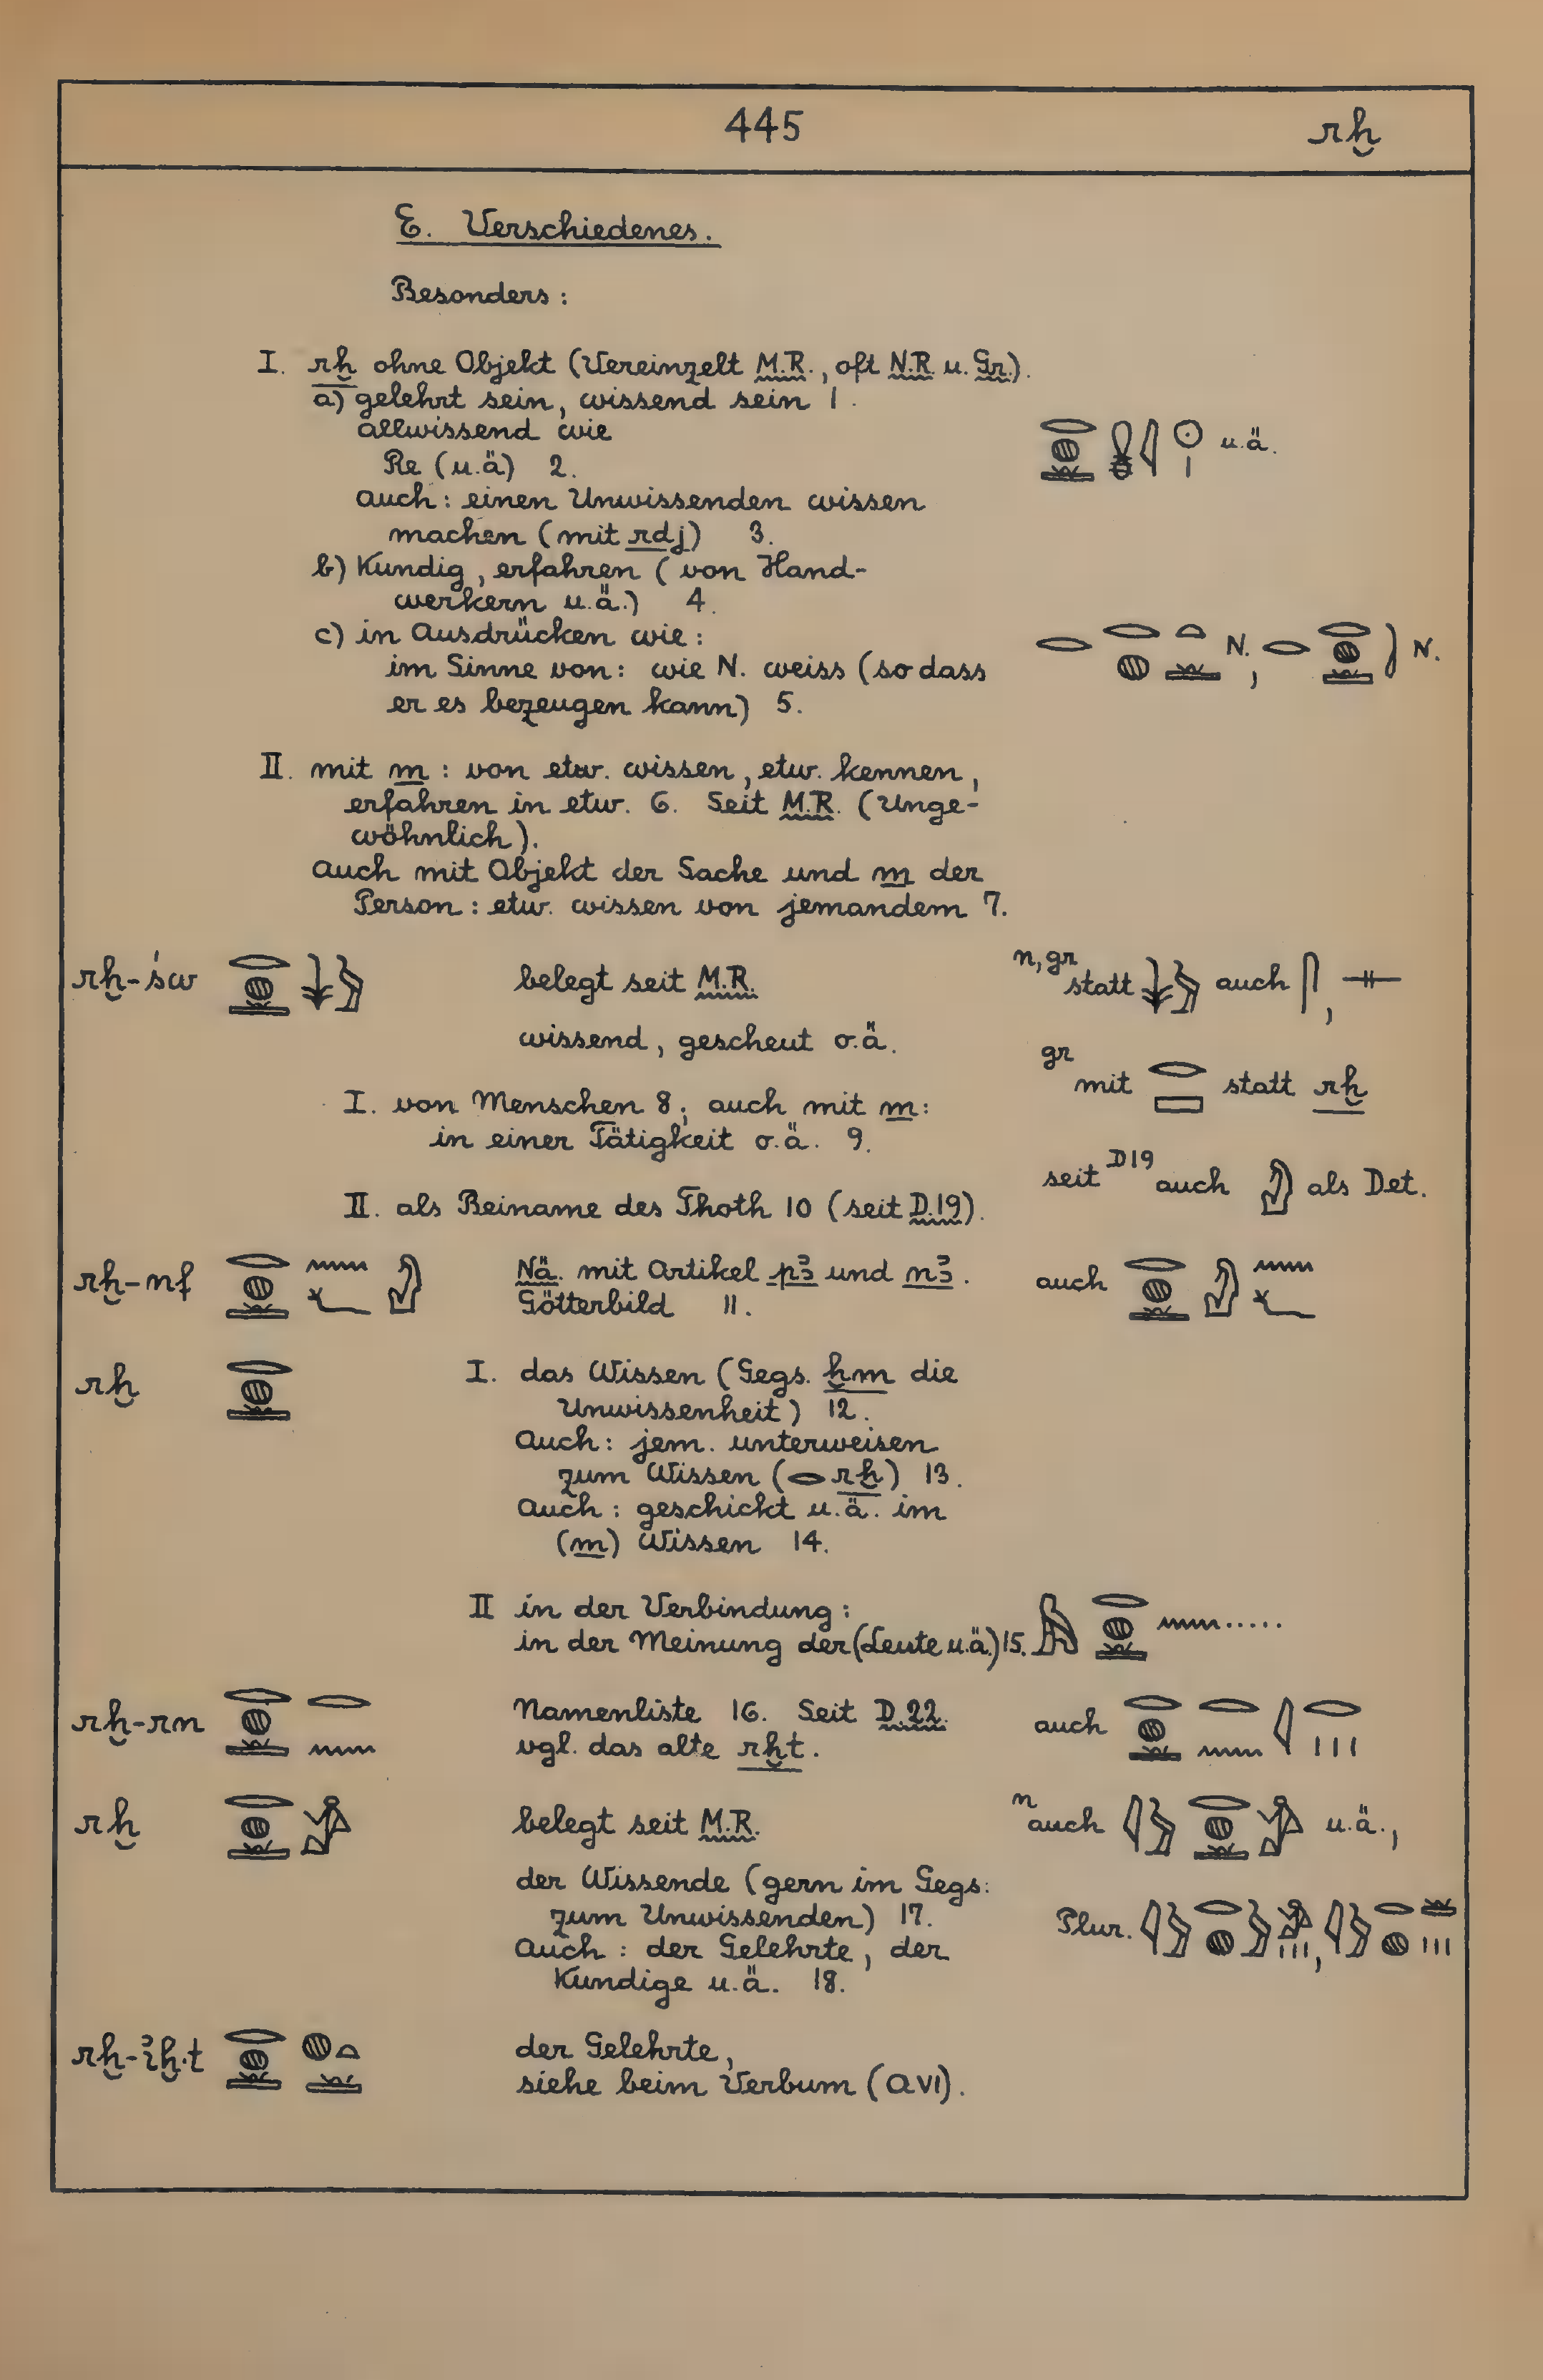 445 rḫ
E. Verschiedenes.
Besonders:
I. rḫ ohne Objekt (Vereinzelt M.R., oft N.R. u. Gr.).
a) gelehrt sein, wissend sein 1.
allwissend wie
Re (u.ä) 2. u.ä.
auch: einen Unwissenden wissen
machen (mit rdj) 3.
b) Kundig, erfahren (von Hand-
werkern u.ä.) 4.
c) in Ausdrücken wie: N., N.
im Sinne von: wie N. weiss (so dass
er es bezeugen kann) 5.
II. mit m: von etw. wissen, etw. kennen,
erfahren in etw. 6. Seit M.R. (Unge-
wöhnlich).
Auch mit Objekt der Sache und m der
Person: etw. wissen von jemandem 7.
rḫ-św belegt seit M.R. n, gr statt auch ,
wissend, gescheut o.ä.
gr mit statt rḫ
I. von Menschen 8; auch mit m:
in einer Tätigkeit o.ä. 9.
seit D19 auch als Det.
II. als Beiname des Thoth 10 (seit D.19).
rḫ-nf Nä. mit Artikel pꜣ und nꜣ. auch
Götterbild 11.
rḫ I. das Wissen (Gegs. ḫm die
Unwissenheit) 12.
Auch: jem. unterweisen
zum Wissen (𓂋 rḫ) 13.
Auch: geschickt u.ä. im
(m) Wissen 14.
II in der Verbindung: .....
in der Meinung der (Leute u.ä.) 15.
rḫ-rn Namenliste 16. Seit D.22. auch
vgl. das alte rḫt.
rḫ belegt seit M.R. n auch u.ä.,
der Wissende (gern im Gegs:
zum Unwissenden) 17. Plur. ,
Auch: der Gelehrte, der
Kundige u.ä. 18.
rḫ-iꜣḫ.t der Gelehrte,
siehe beim Verbum (A VI).